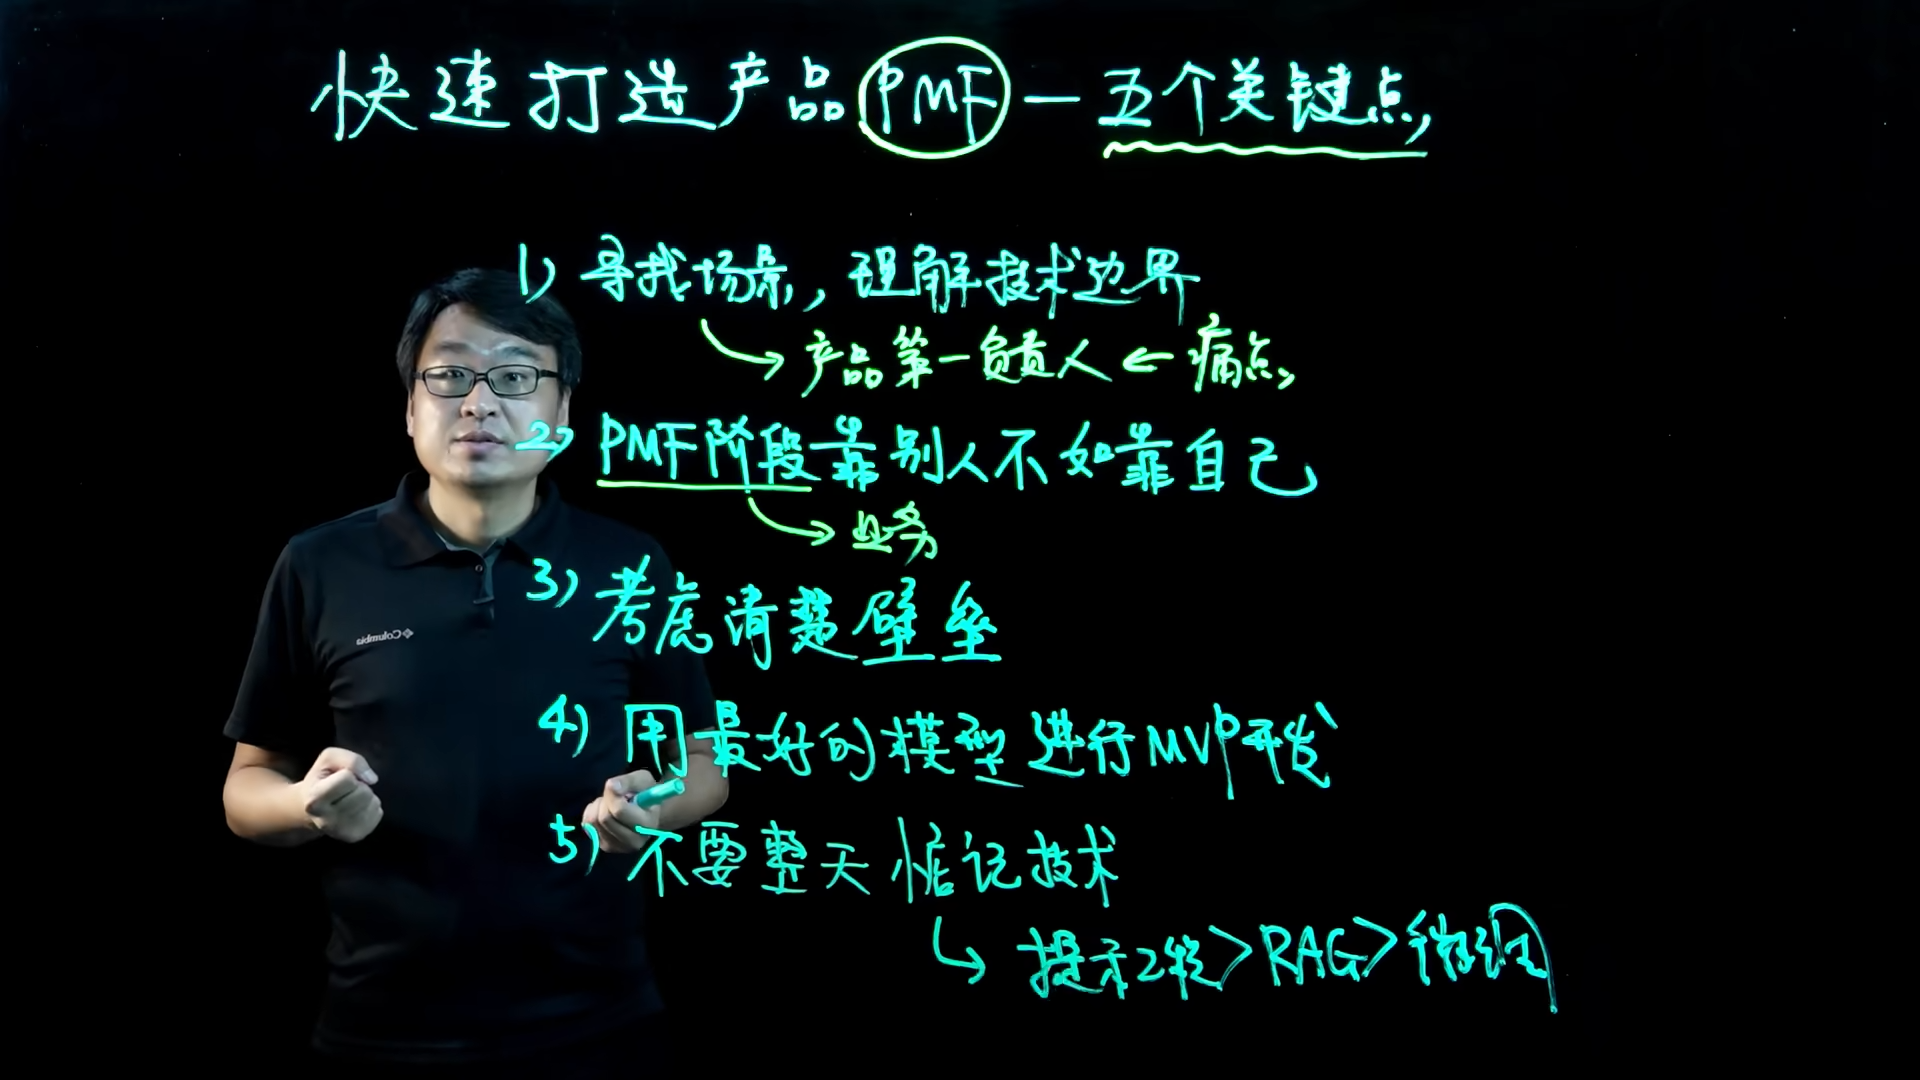 快速打造产品PMF—五个关键点,
1) 寻找场景, 理解技术边界
产品第一负责人 ← 痛点,
2) PMF阶段靠别人不如靠自己
业务
3) 考虑清楚壁垒
Columbia
4) 用最好的模型进行MVP开发
5) 不要整天惦记技术
提示工程>RAG>微调